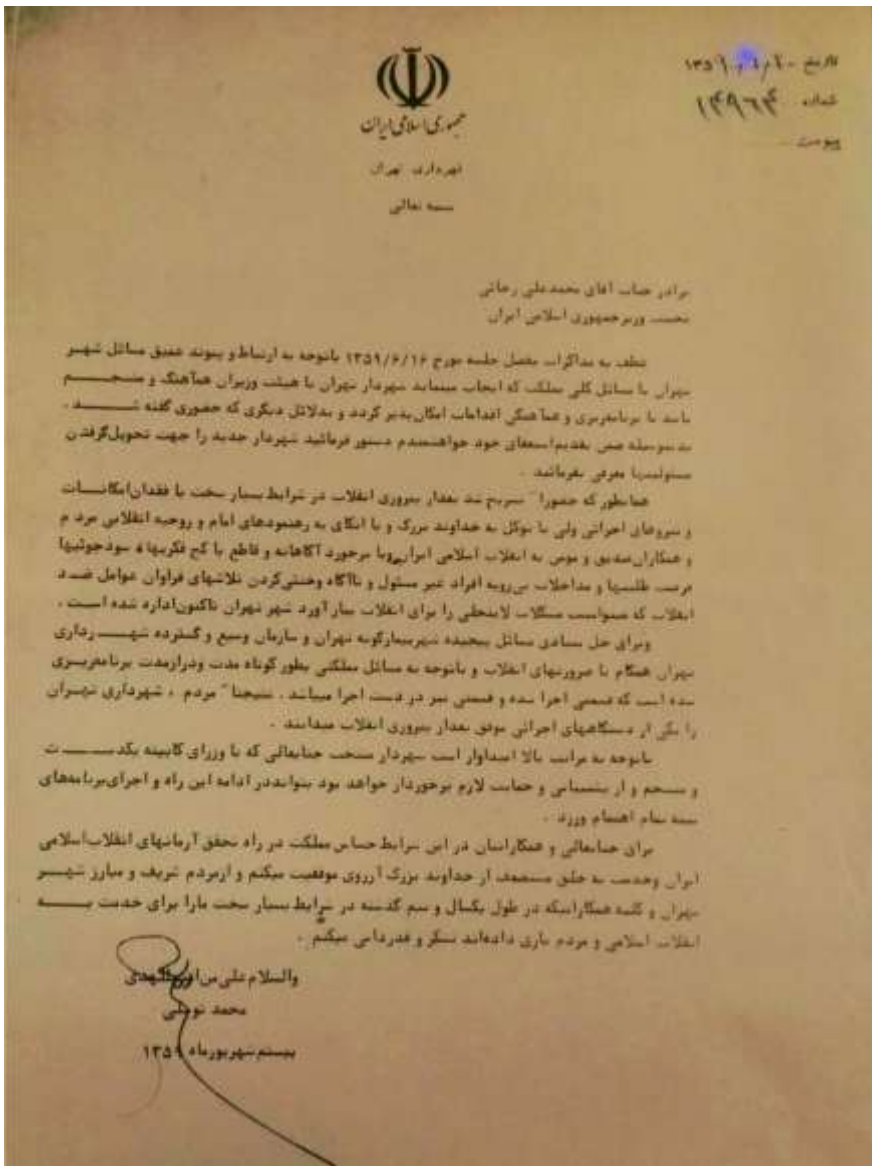 تاریخ ۱۳۵۹
شماره ۱۴۹۶۴
پیوست
جمهوری اسلامی ایران
شهرداری تهران
بسمه تعالی
برادر جناب آقای محمدعلی رجائی
نخست وزیر جمهوری اسلامی ایران
عطف به مذاکرات مفصل جلسه مورخ ۱۳۵۹/۶/۱۶ باتوجه به ارتباط و پیوند عمیق مسائل شهر
تهران با مسائل کلی مملکت که ایجاب مینماید شهردار تهران با هیئت وزیران هماهنگ و منسجم
باشد تا برنامه‌ریزی و هماهنگی اقدامات امکان‌پذیر گردد و بدلائل دیگری که حضوری گفته شد .
بدینوسیله ضمن تقدیم استعفای خود خواهشمندم دستور فرمائید شهردار جدید را جهت تحویل گرفتن
مسئولیتها معرفی بفرمائید .
همانطور که حضورا" تشریح شد بعداز پیروزی انقلاب در شرایط بسیار سخت با فقدان امکانات
و نیروهای اجرائی ولی با توکل به خداوند بزرگ و با اتکای به رهنمودهای امام و روحیه انقلابی مردم
و همکاران صدیق و مومن به انقلاب اسلامی ایران وبا برخورد آگاهانه و قاطع با کج فکریها و سودجوئیها
فرصت طلبیها و مداخلات بی‌رویه افراد غیر مسئول و ناآگاه وخنثی‌کردن تلاشهای فراوان عوامل ضد
انقلاب که میتوانست مشکلات لاینحلی را برای انقلاب ببار آورد شهر تهران تاکنون اداره شده است .
وبرای حل بنیادی مسائل پیچیده شهر بیمارگونه تهران و سازمان وسیع و گسترده شهرداری
تهران همگام با ضرورتهای انقلاب و باتوجه به مسائل مملکتی بطور کوتاه مدت ودرازمدت برنامه‌ریزی
شده است که قسمتی اجرا شده و قسمتی نیز در دست اجرا میباشد . نتیجتا" مردم ، شهرداری تهران
را یکی از دستگاههای اجرائی موفق بعداز پیروزی انقلاب میدانند .
باتوجه به مراتب بالا امیدوار است شهردار منتخب جنابعالی که با وزرای کابینه یکدست
و منسجم و از پشتیبانی و حمایت لازم برخوردار خواهد بود بتواند در ادامه این راه و اجرای برنامه‌های
تمام اهتمام ورزد .
برای جنابعالی و همکارانتان در این شرایط حساس مملکت در راه تحقق آرمانهای انقلاب اسلامی
ایران وخدمت به خلق مستضعف از خداوند بزرگ آرزوی موفقیت میکنم و ازمردم شریف و مبارز شهر
تهران و کلیه همکارانیکه در طول یکسال و نیم گذشته در شرایط بسیار سخت مارا برای خدمت به
انقلاب اسلامی و مردم یاری داده‌اند تشکر و قدردانی میکنم .
والسلام علی من اتبع الهدی
محمد توسلی
بیستم شهریورماه ۱۳۵۹